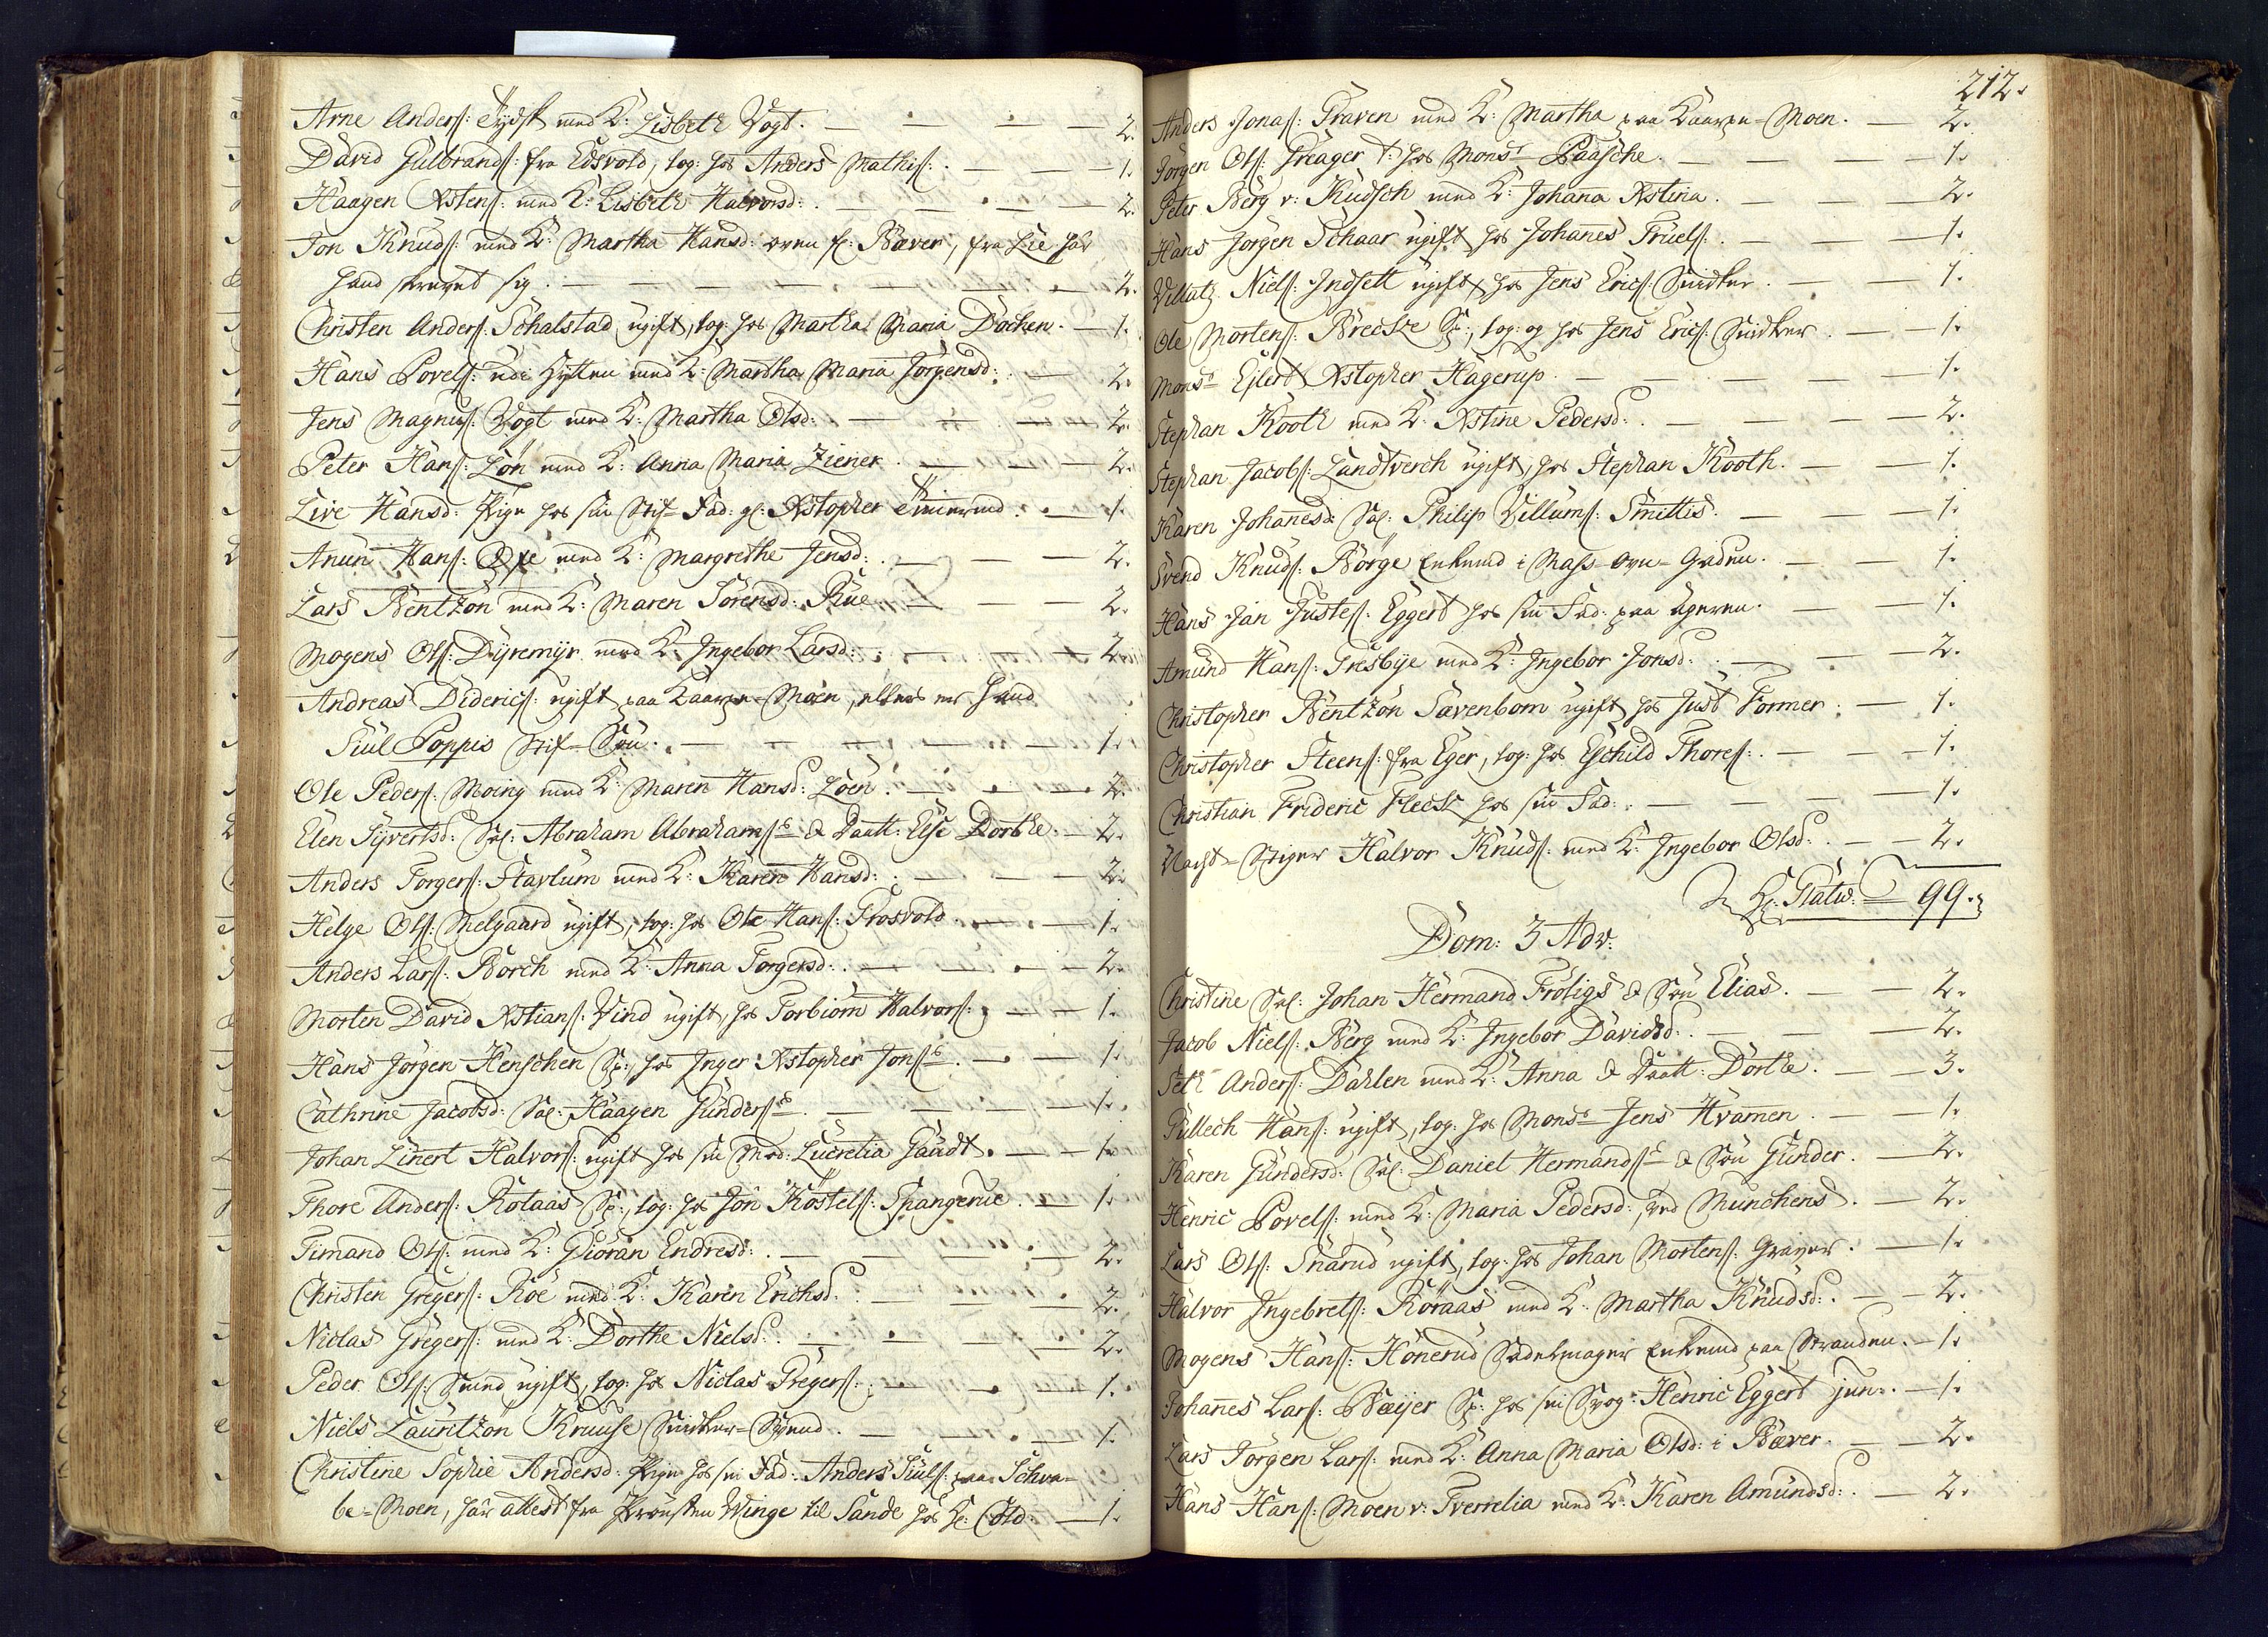 Arne Anders: Tydsk med K: Lisbeth Vogt. — 2.
David Gulbrands: fra Edsvold, log: hos Anders Mathis: — 1.
Haagen Xstens: med K: Lisbeth Halvorsd: — 2.
Jon Knuds: med K: Martha Hansd: oven f: Bæver, fra Lie har
hand skrevet sig. — 2.
Christen Anders: Schalstad ugift, log: hos Martha Maria Dochen. — 1.
Hans Povels: ude Hytten med K: Martha Maria Jörgensd: — 2.
Jens Magnus: Vogt med K: Martha Olsd: — 2.
Peter Hans: Lön med K: Anna Maria Ziener. — 2.
Live Hansd: Pige hos sin Stif-Fad: gl: Xstopher — 1.
Anun Hans: med K: Margrethe Jensd: — 2.
Lars Bentzon med K: Maren Sörensd: Rue — 2.
Mogens Ols: Dyremyr med K: Ingebor Larsd: — 2.
Andreas Diderics: ugift paa Kaarpe-Moen, ellers er hand
Siul Poppis Stif-Sön. — 1.
Ole Peders: Moing med K: Maren Hansd: Löen. — 2.
Elen Syvertsd: Sal: Abraham Abrahams: & Daatt: Else Dorthe. — 2.
Anders Torgers: Stavlum med K: Karen Hansd: — 2.
Helge Ols: Melgaard ugift, log: hos Ole Hans: Frosvold. — 1.
Anders Lars: Borch med K: Anna Torgersd: — 2.
Morten David Xstians: Vind ugift, hos Torbiörn Halvors: — 1.
Hans Jörgen Henschen Sp:, hos Inger Xstopher Jons: — 1.
Cathrine Jacobsd: Sal: Haagen Gunders: — 1.
Johan Linert Halvors: ugift hos sin Mod: Lucretia Gaudt. — 1.
Thore Anders: Kolaas Sp:, log: hos Jon Kostels: Spangerue. — 1.
Simand Ols: med K: Giöran Endresd: — 2.
Christen Gregers: Roe med K: Karen Erichsd: — 2.
Niclas Gregers: med K: Dorthe Nielsd: — 2.
Peder Ols: Smed ugift, log: hos Niclas Gregers: — 1.
Niels Lauritzon Kruuse Snidker-Svend. — 1.
Christine Sophie Andersd: Pige hos sin Fad: Anders Siuls: paa Schva-
be-Moen, har attest fra Provsten Winge til Sande hos Hr: Cold. — 1.
212.
Anders Jonas: Graven med K: Martha paa Kaarpe-Moen. — 2.
Jörgen Ols: Greager T: hos Monsr Paasche. — 1.
Peter Berg v: Kudsch med K: Johanna Xstina. — 2.
Hans Jörgen Schaar ugift hos Johanes Truels: — 1.
Villatz Niels: Indsett ugift, hos Jens Erics: Snidker. — 1.
Ole Mortens: Brecke Sp:, log: og hos Jens Erics: Snidker. — 1.
Monsr Ejlert Xstopher Hagerup. — 1.
Stephan Kooth med K: Xstine Pedersd: — 2.
Stephan Jacobs: Landtverch ugift, hos Stephan Kooth. — 1.
Karen Johannesd: Sal: Philip Villums: Smittis. — 1.
Svend Knuds: Börge Enkemd i Mass-Ovn-Gaden. — 1.
Hans Jan Justes: Eggert hos sin Fad: paa Ageren. — 1.
Amund Hans: Gresbye med K: Ingebor Jonsd: — 2.
Christopher Bentzon Sævenbom ugift hos Just Former. — 1.
Christopher Steens: fra Eger, log: hos Eschild Thores: — 1.
Christian Frideric Fleck hos sin Fad: — 1.
Nacht-Stiger Halvor Knuds: med K: Ingebor Olsd: — 2.
Hr: Statw: — 99.
Dom: 3 Adv:
Christine Sal: Johan Hermand Fröligs & Sön Elias. — 2.
Jacob Niels: Berg med K: Ingebor Davidsd: — 2.
Seth Anders: Dahlen med K: Anna & Daatt: Dorthe. — 3.
Pullech Hans: ugift, log: hos Monsr Jens Hvamen. — 1.
Karen Gundersd: Sal: Daniel Hermands: & Sön Gunder. — 2.
Henric Povels: med K: Maria Pedersd:, ved Munchens. — 2.
Lars Ols: Snarud ugift, log: hos Johan Mortens: Graver. — 1.
Halvor Ingebrets: Röraas med K: Martha Knudsd: — 2.
Mogens Hans: Hönerud Sadelmager Enkemd paa Stranden. — 1.
Johannes Lars: Bæyer Sp: hos sin Svog: Henric Eggert jun:. — 1.
Lars Jörgen Lars: med K: Anna Maria Olsd: i Bæver. — 2.
Hans Hans: Moen v: Tverrelia med K: Karen Amundsd: — 2.